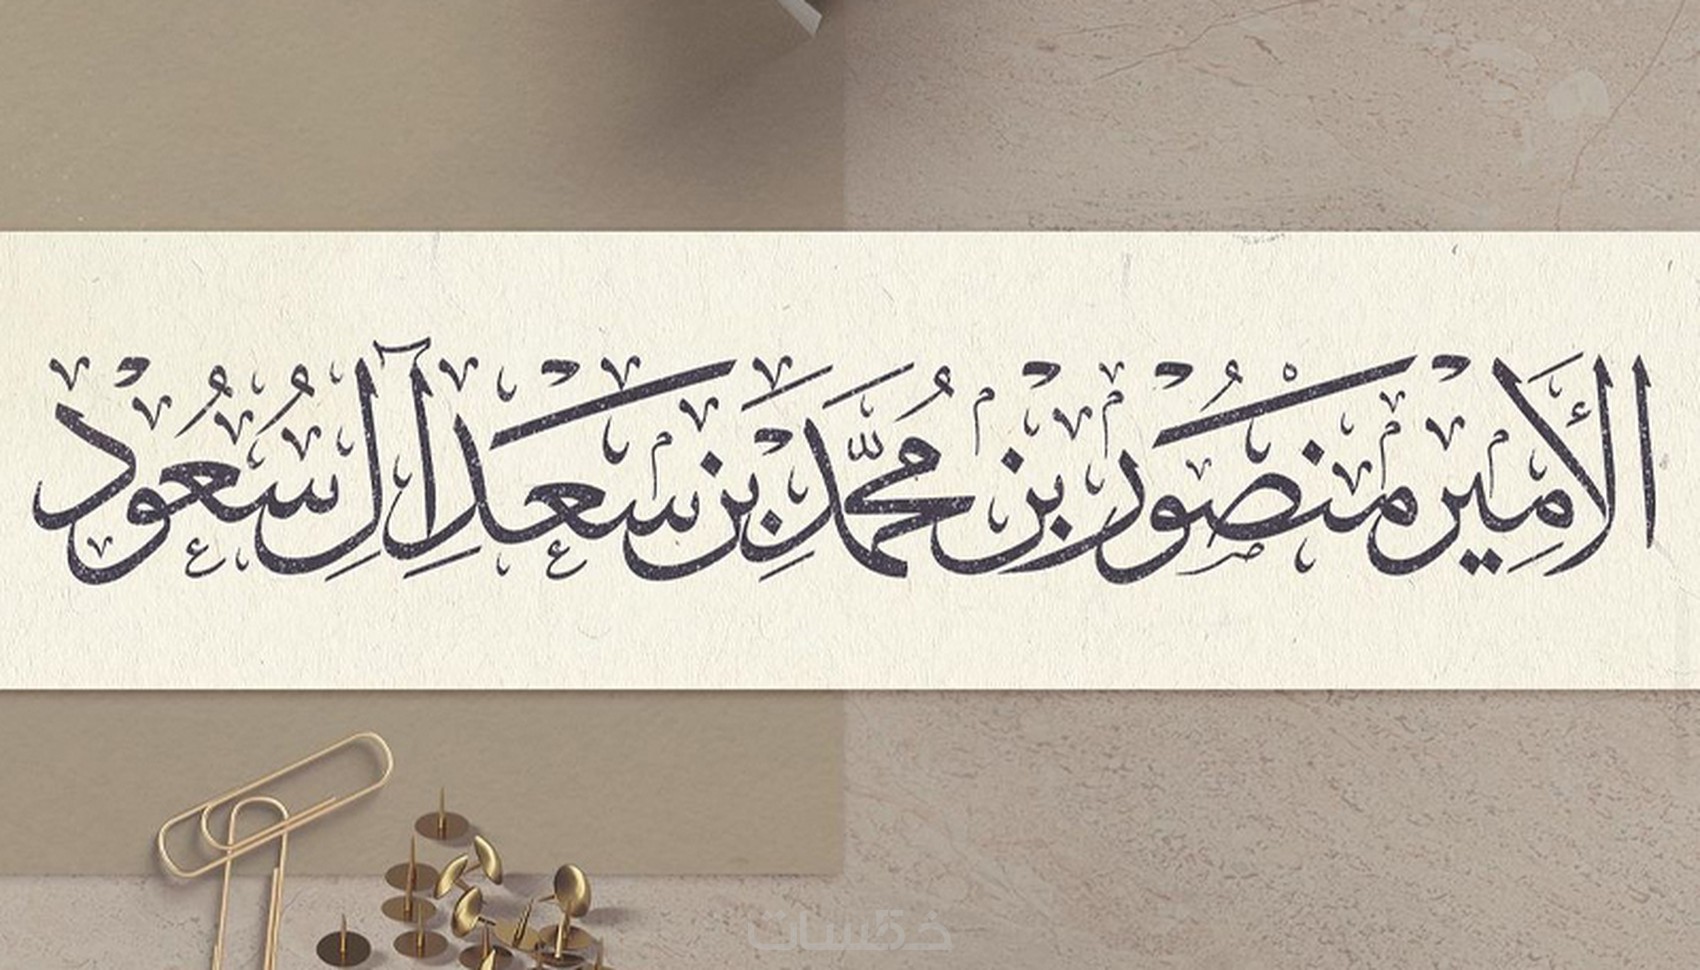 الأمير منصور بن محمد بن سعد آل سعود
خمسات